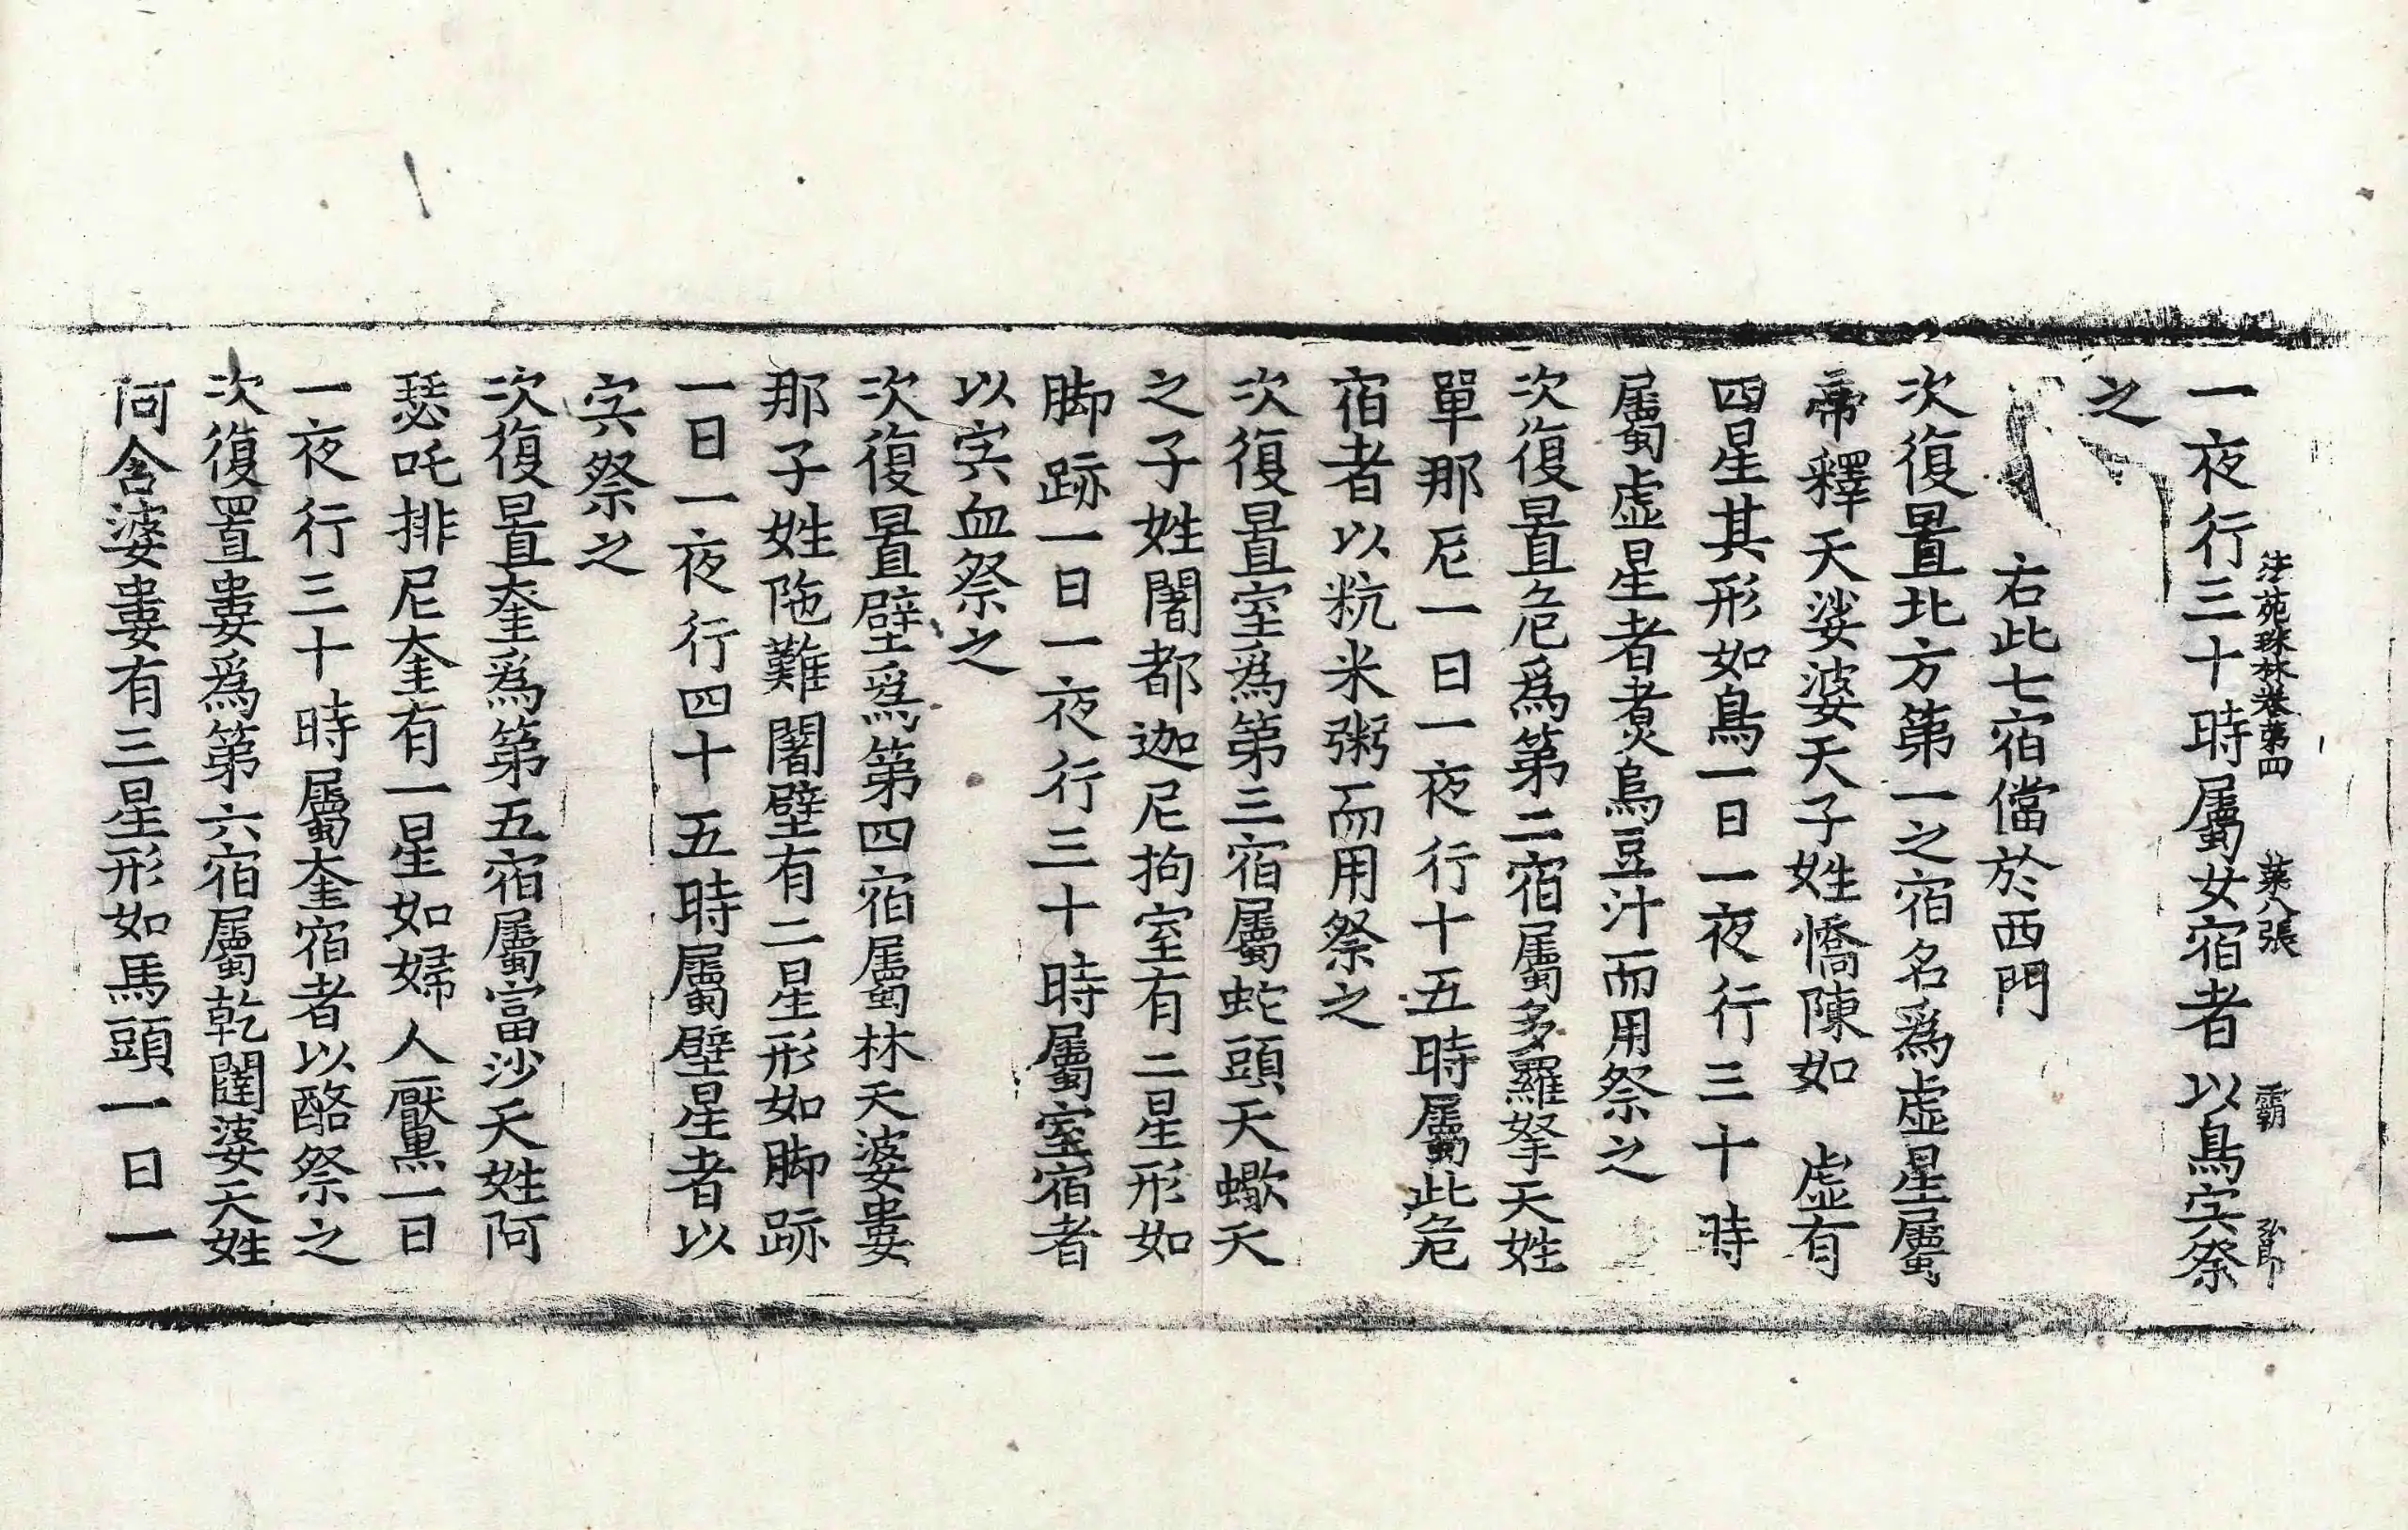 法苑珠林卷第四　第八張　霸　弘郎
一夜行三十時屬女宿者以鳥宍祭
之
右此七宿儅於西門
次復置北方第一之宿名爲虛星屬
帝釋天娑婆天子姓憍陳如　虛有
四星其形如鳥一日一夜行三十時
屬虛星者煑烏豆汁而用祭之
次復置危爲第二宿屬多羅拏天姓
單那尼一日一夜行十五時屬此危
宿者以粇米粥而用祭之
次復置室爲第三宿屬蛇頭天蠍天
之子姓闍都迦尼拘室有二星形如
脚跡一日一夜行三十時屬室宿者
以宍血祭之
次復置壁爲第四宿屬林天婆婁
那子姓陁難闍壁有二星形如脚跡
一日一夜行四十五時屬壁星者以
宍祭之
次復置奎爲第五宿屬富沙天姓阿
瑟吒排尼奎有一星如婦人厭黒一日
一夜行三十時屬奎宿者以酪祭之
次復置婁爲第六宿屬乾闥婆天姓
阿含婆婁有三星形如馬頭一日一